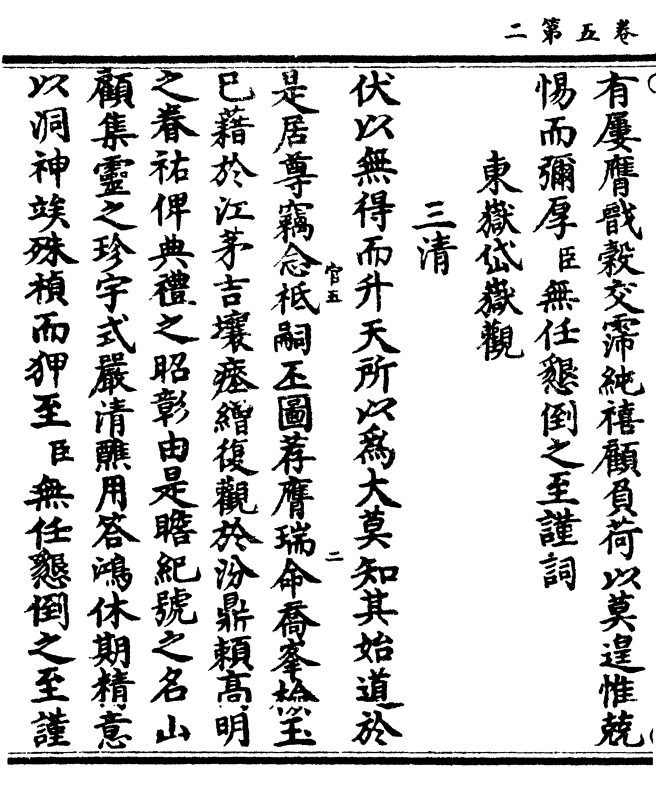 二第五卷
有屢膺戩穀交霈純禧顧負荷以莫遑惟兢
惕而彌厚臣無任懇倒之至謹詞
東嶽岱嶽觀
三清
伏以無得而升天所以爲大莫知其始道於
是居尊竊念祗嗣丕圖荐膺瑞命喬峯檢玉
官五
二
巳藉於江茅吉壤瘞繒復觀於汾鼎賴高明
之眷祐俾典禮之昭彰由是瞻紀號之名山
顧集靈之珍宇式嚴清醮用答鴻休期精意
以洞神竢殊楨而狎至臣無任懇倒之至謹